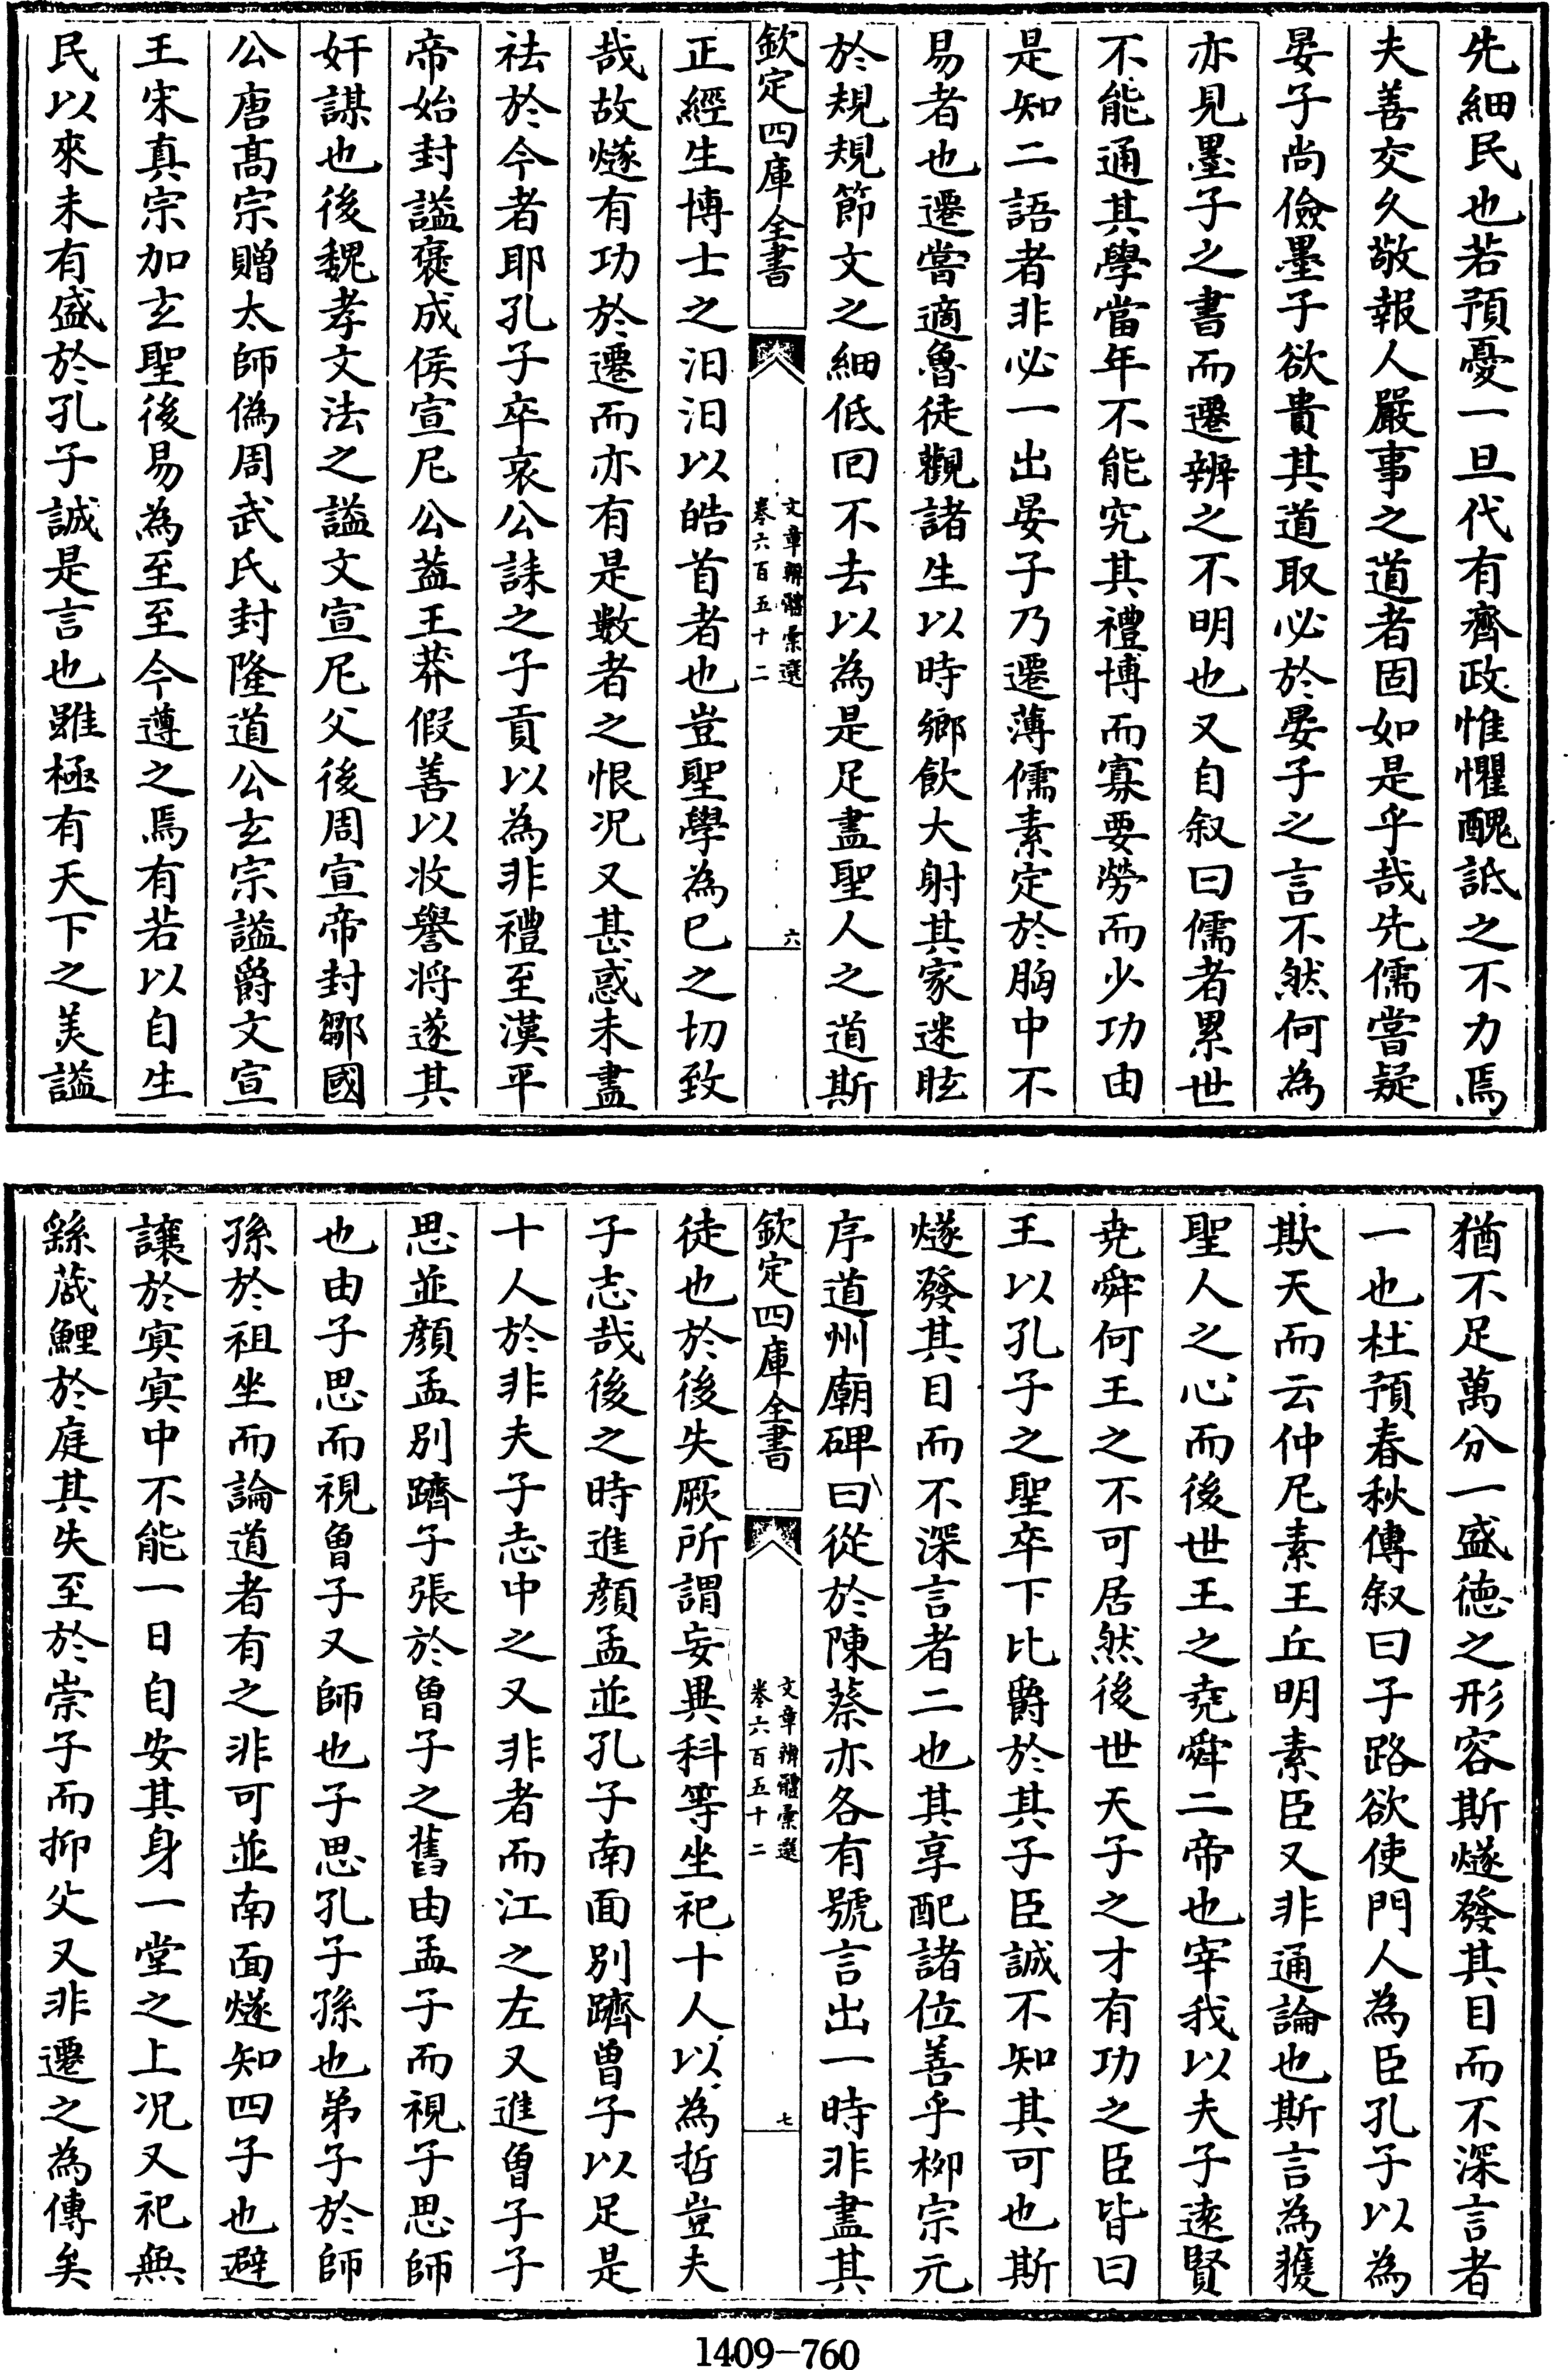 先細民也若預憂一旦代有齊政惟懼醜詆之不力焉
夫善交久敬報人嚴事之道者固如是乎哉先儒嘗疑
晏子尚儉墨子欲貴其道取必於晏子之言不然何為
亦見墨子之書而遷辨之不明也又自叙曰儒者累世
不能通其學當年不能究其禮博而寡要勞而少功由
是知二語者非必一出晏子乃遷薄儒素定於胸中不
易者也遷嘗適魯徒觀諸生以時鄉飲大射其家迷眩
於規規節文之細低回不去以為是足盡聖人之道斯
欽定四庫全書
文章辨體彙選
卷六百五十二
六
正經生博士之汨汨以皓首者也豈聖學為已之切致
哉故燧有功於遷而亦有是數者之恨况又甚惑未盡
祛於今者耶孔子卒哀公誄之子貢以為非禮至漢平
帝始封謚襃成侯宣尼公葢王莽假善以收譽将遂其
奸謀也後魏孝文法之謚文宣尼父後周宣帝封鄒國
公唐髙宗贈太師偽周武氏封隆道公玄宗謚爵文宣
王宋真宗加玄聖後易為至至今遵之焉有若以自生
民以來未有盛於孔子誠是言也雖極有天下之美謚
猶不足萬分一盛德之形容斯燧發其目而不深言者
一也杜預春秋傳叙曰子路欲使門人為臣孔子以為
欺天而云仲尼素王丘明素臣又非通論也斯言為獲
聖人之心而後世王之堯舜二帝也宰我以夫子逺賢
堯舜何王之不可居然後世天子之才有功之臣皆曰
王以孔子之聖卒下比爵於其子臣誠不知其可也斯
燧發其目而不深言者二也其享配諸位善乎柳宗元
序道州廟碑曰從於陳蔡亦各有號言出一時非盡其
欽定四庫全書
文章辨體彙選
卷六百五十二
七
徒也於後失厥所謂妄異科等坐祀十人以為哲豈夫
子志哉後之時進顔孟並孔子南面別躋曾子以足是
十人於非夫子志中之又非者而江之左又進曾子子
思並顔孟別躋子張於曾子之舊由孟子而視子思師
也由子思而視曾子又師也子思孔子孫也弟子於師
孫於祖坐而論道者有之非可並南面燧知四子也避
讓於㝠㝠中不能一日自安其身一堂之上况又祀無
繇蒇鯉於庭其失至於崇子而抑父又非遷之為傳矣
1409-760